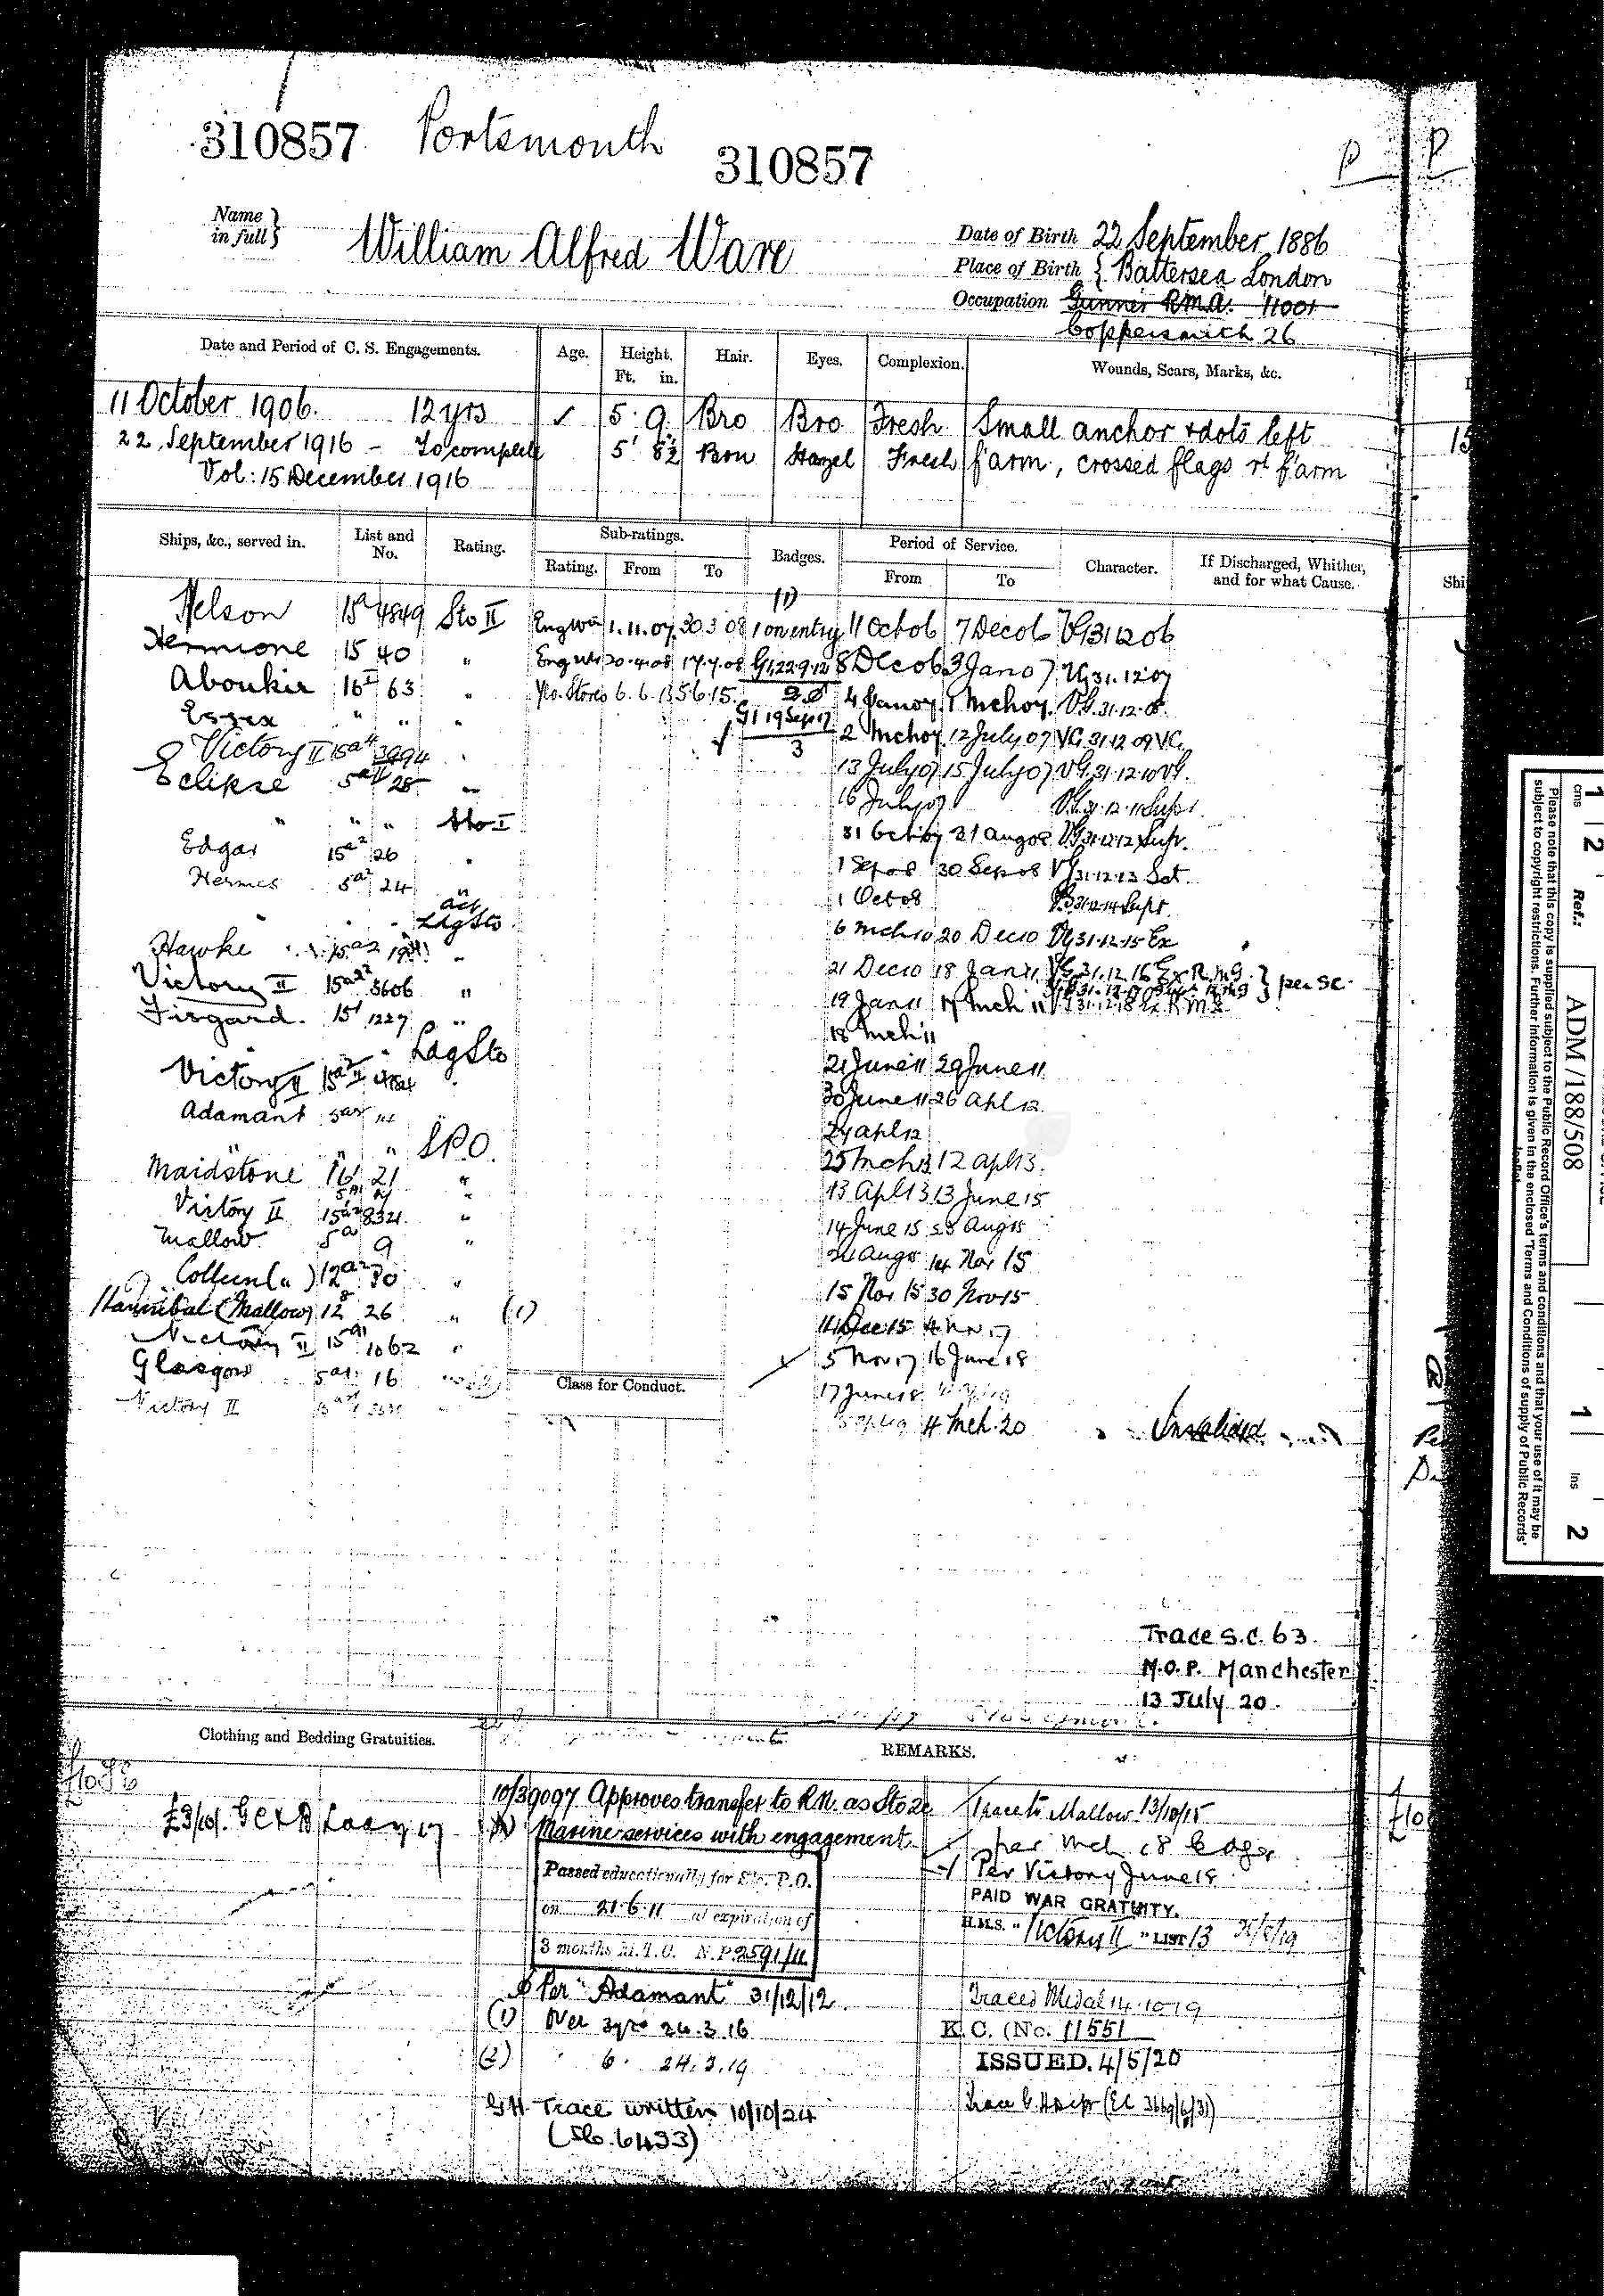 310857 Portsmouth 310857
P P
Name in full } William Alfred Ware
Date of Birth 22 September 1886
Place of Birth { Battersea London
Occupation Gunner R.M.A. 11001
Coppersmith 26
Date and Period of C. S. Engagements. Age. Height. Ft. in. Hair. Eyes. Complexion. Wounds, Scars, Marks, &c.
11 October 1906. 12 yrs ✓ 5 . 9 Bro Bro Fresh Small anchor + dots left
22 September 1916 - To complete 5' 8½ Brn Hazel Fresh f'arm, crossed flags rt f'arm
Vol: 15 December 1916
Ships, &c., served in. List and No. Rating. Sub-ratings. Badges. Period of Service. Character. If Discharged, Whither, and for what Cause.
Rating. From To From To
(1)
Nelson 15a 4849 Sto II 1.11.07 30.3.08 1 on entry 11 Oct 06 7 Dec 06 VG 31 12 06
Hermione 15 40 " 20.4.08 17.7.08 G1, 22.9.12 8 Dec 06 3 Jan 07 VG 31.12.07
Aboukir 16 I 63 " Yeo. Stores 6.6.13 5.6.15 2 4 Jan 07 1 Mch 07 VG. 31.12.08
Essex " " " G1 19 Sep 17 2 Mch 07 12 July 07 VG 31.12.09 VG
Victory II 15a4 3994 " ✓ 3 13 July 07 15 July 07 VG. 31.12.10 VG.
Eclipse 5a II 28 " 16 July 07 VG 31.12.11 Supr
" " " Sto I 31 Oct 07 31 Aug 08 VG 31.12.12 Supr.
Edgar 15a2 26 " 1 Sep 08 30 Sep 08 VG 31.12.13 Sat
Hermes 5a2 24 " 1 Oct 08 VG 31.12.14 Supr
" " " act Ldg Sto 6 Mch 10 20 Dec 10 VG 31.12.15 Ex
Hawke 15a2 " 21 Dec 10 18 Jan 11 VG 31.12.16 Ex R.M.G. } per SC.
Victory II 15a22 3606 " 19 Jan 11 17 Mch 11 VG 31.12.18 Ex R.M.G.
Fisgard. 15I 1227 " 18 Mch 11
" " Ldg Sto 21 June 11 29 June 11
Victory II 15a2 II " 30 June 11 26 Apl 12
Adamant 27 Apl 12
" " S.P.O. 25 Mch 13 12 Apl 13
Maidstone 16 21 " 13 Apl 13 13 June 15
Victory II 15a2 8321 " 14 June 15 23 Aug 15
Mallow 5a 9 " 24 Aug 15 14 Nov 15
Colleen ( " ) 12a2 80 " 15 Nov 15 30 Nov 15
Hannibal (Mallow) 12 8 26 " (1) 1 Dec 15 4 Nov 17
Victory II 15a1 1062 " 5 Nov 17 16 June 18
Glasgow 5a1 16 17 June 18
Victory II 4 Mch. 20 Invalided
Class for Conduct.
Trace S.C. 63
M.O.P. Manchester
13 July 20.
Clothing and Bedding Gratuities. REMARKS.
£3/10/.
10/39097 Approves transfer to R.N. as Sto 2c
Marine services with engagement
Passed educationally for Sto. P.O.
on 21.6.11 at expiration of
3 months M.T.C. N.P. 2591/11
Per "Adamant" 31/12/12
(1) Over 3 yrs 24.3.16
(2) " 6 . 24.3.19
G.H. Trace written 10/10/24
Trace to Mallow 13/10/15
Per Victory June 18
PAID WAR GRATUITY.
H.M.S. "Victory II" LIST 13
Traced Medal 14.10.19
K. C. (No. 11551
ISSUED. 4/5/20
£10
1 2 cms Ref.: ADM/188/508 1 2 ins
Please note that this copy is supplied subject to the Public Record Office's terms and conditions and that your use of it may be
subject to copyright restrictions. Further information is given in the enclosed 'Terms and Conditions of supply of Public Records'
leaflet